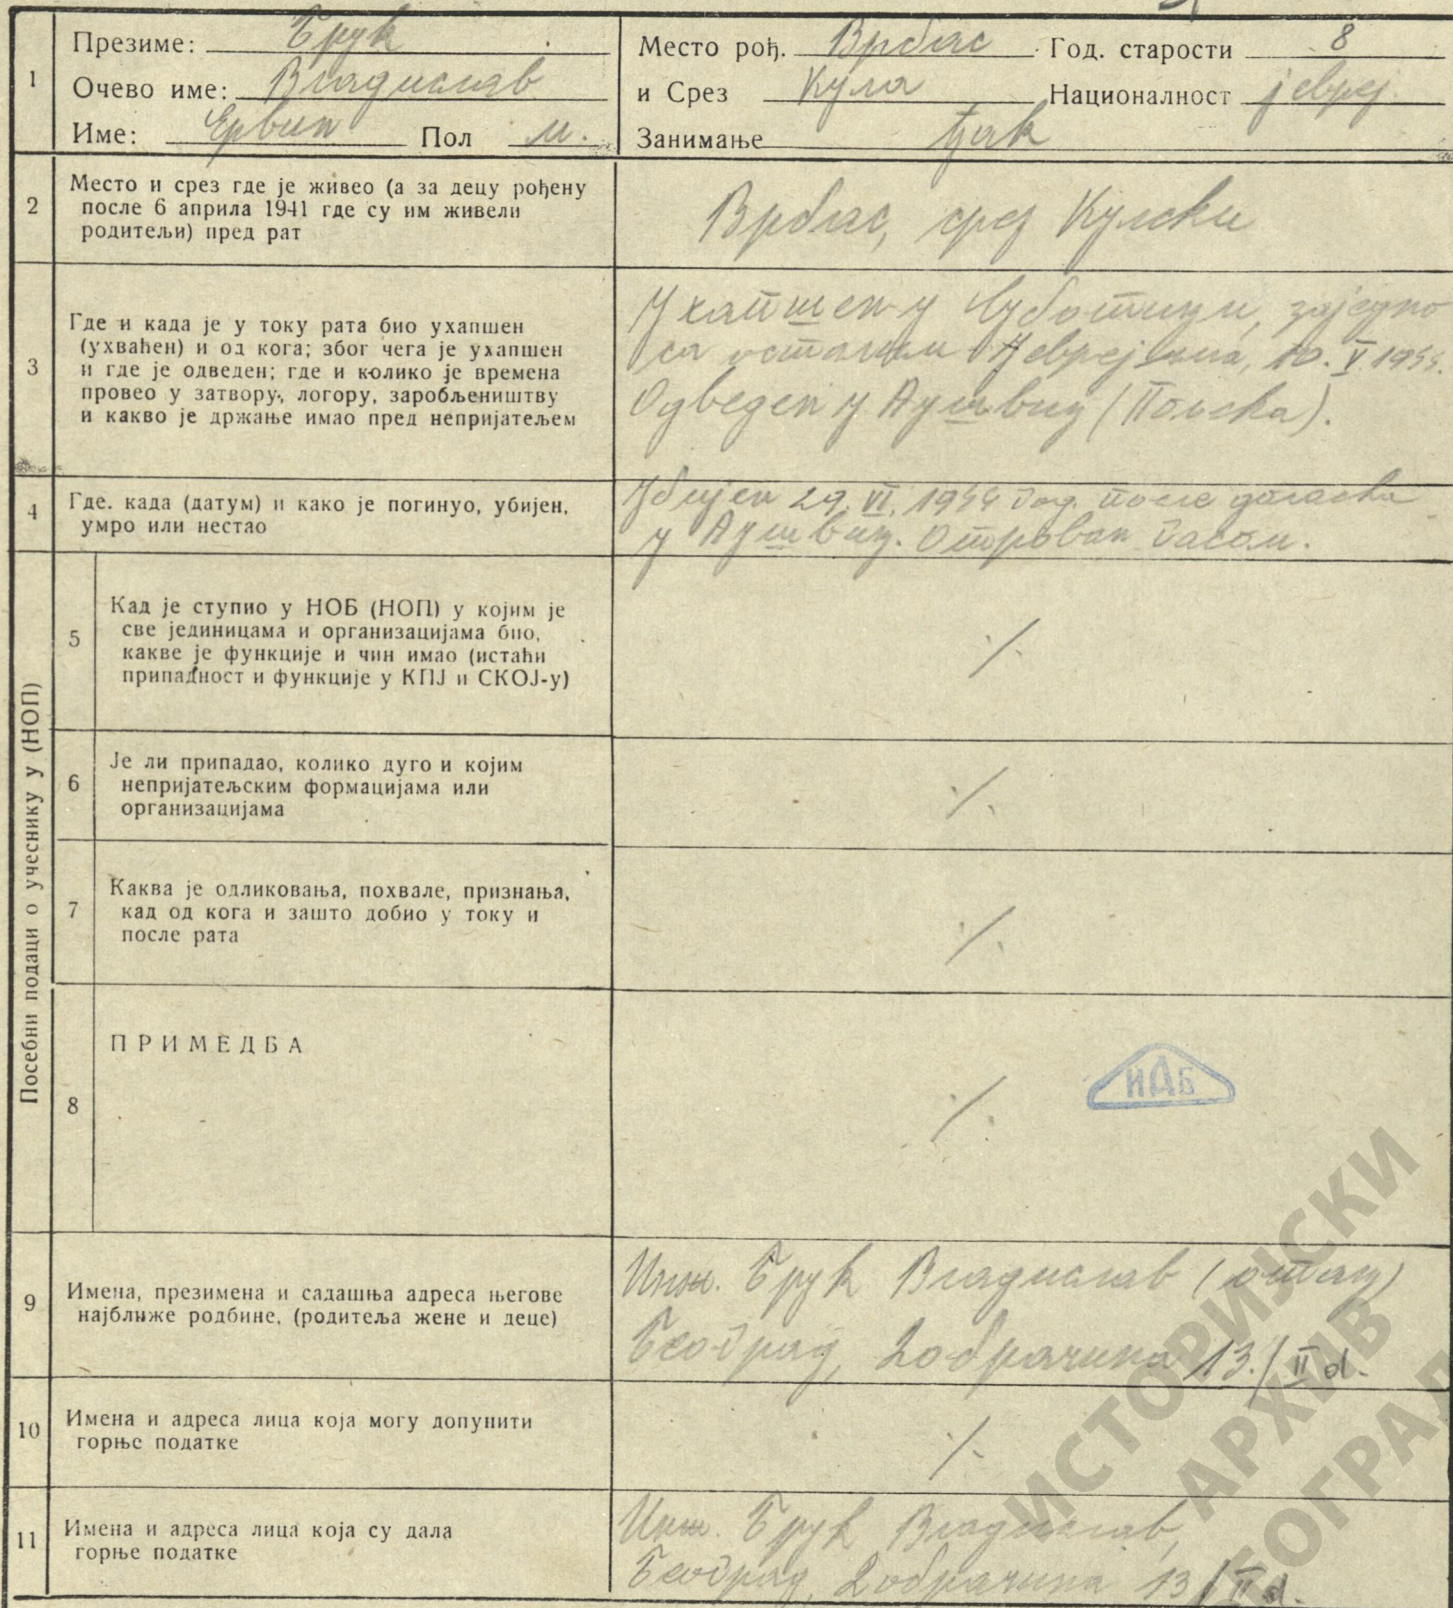 1
Презиме: Брук
Очево име: Владислав
Име: Ервин Пол м.
Место рођ. Врбас Год. старости 8
и Срез Кула Националност јевреј.
Занимање ђак
2
Место и срез где је живео (а за децу рођену
после 6 априла 1941 где су им живели
родитељи) пред рат
Врбас, срез Кулски
3
Где и када је у току рата био ухапшен
(ухваћен) и од кога; због чега је ухапшен
и где је одведен; где и колико је времена
провео у затвору, логору, заробљеништву
и какво је држање имао пред непријатељем
Ухапшен у Суботици, заједно
са осталим Јеврејима, 10. V 1944.
Одведен у Аушвиц (Пољска).
4
Где. када (датум) и како је погинуо, убијен,
умро или нестао
Убијен 29. VI. 1944 год. после доласка
у Аушвиц. Отрован гасом.
Посебни подаци о учеснику у (НОП)
5
Кад је ступио у НОБ (НОП) у којим је
све јединицама и организацијама био,
какве је функције и чин имао (истаћи
припадност и функције у КПЈ и СКОЈ-у)
·/·
6
Је ли припадао, колико дуго и којим
непријатељским формацијама или
организацијама
·/·
7
Каква је одликовања, похвале, признања,
кад од кога и зашто добио у току и
после рата
·/·
8
ПРИМЕДБА
·/·
ИАБ
9
Имена, презимена и садашња адреса његове
најближе родбине, (родитеља жене и деце)
Инж. Брук Владислав (отац)
Београд, Добрачина 13./II d.
10
Имена и адреса лица која могу допунити
горње податке
·/·
11
Имена и адреса лица која су дала
горње податке
Инж. Брук Владислав,
Београд, Добрачина 13/II d.
ИСТОРИЈСКИ
АРХИВ
БЕОГРАД